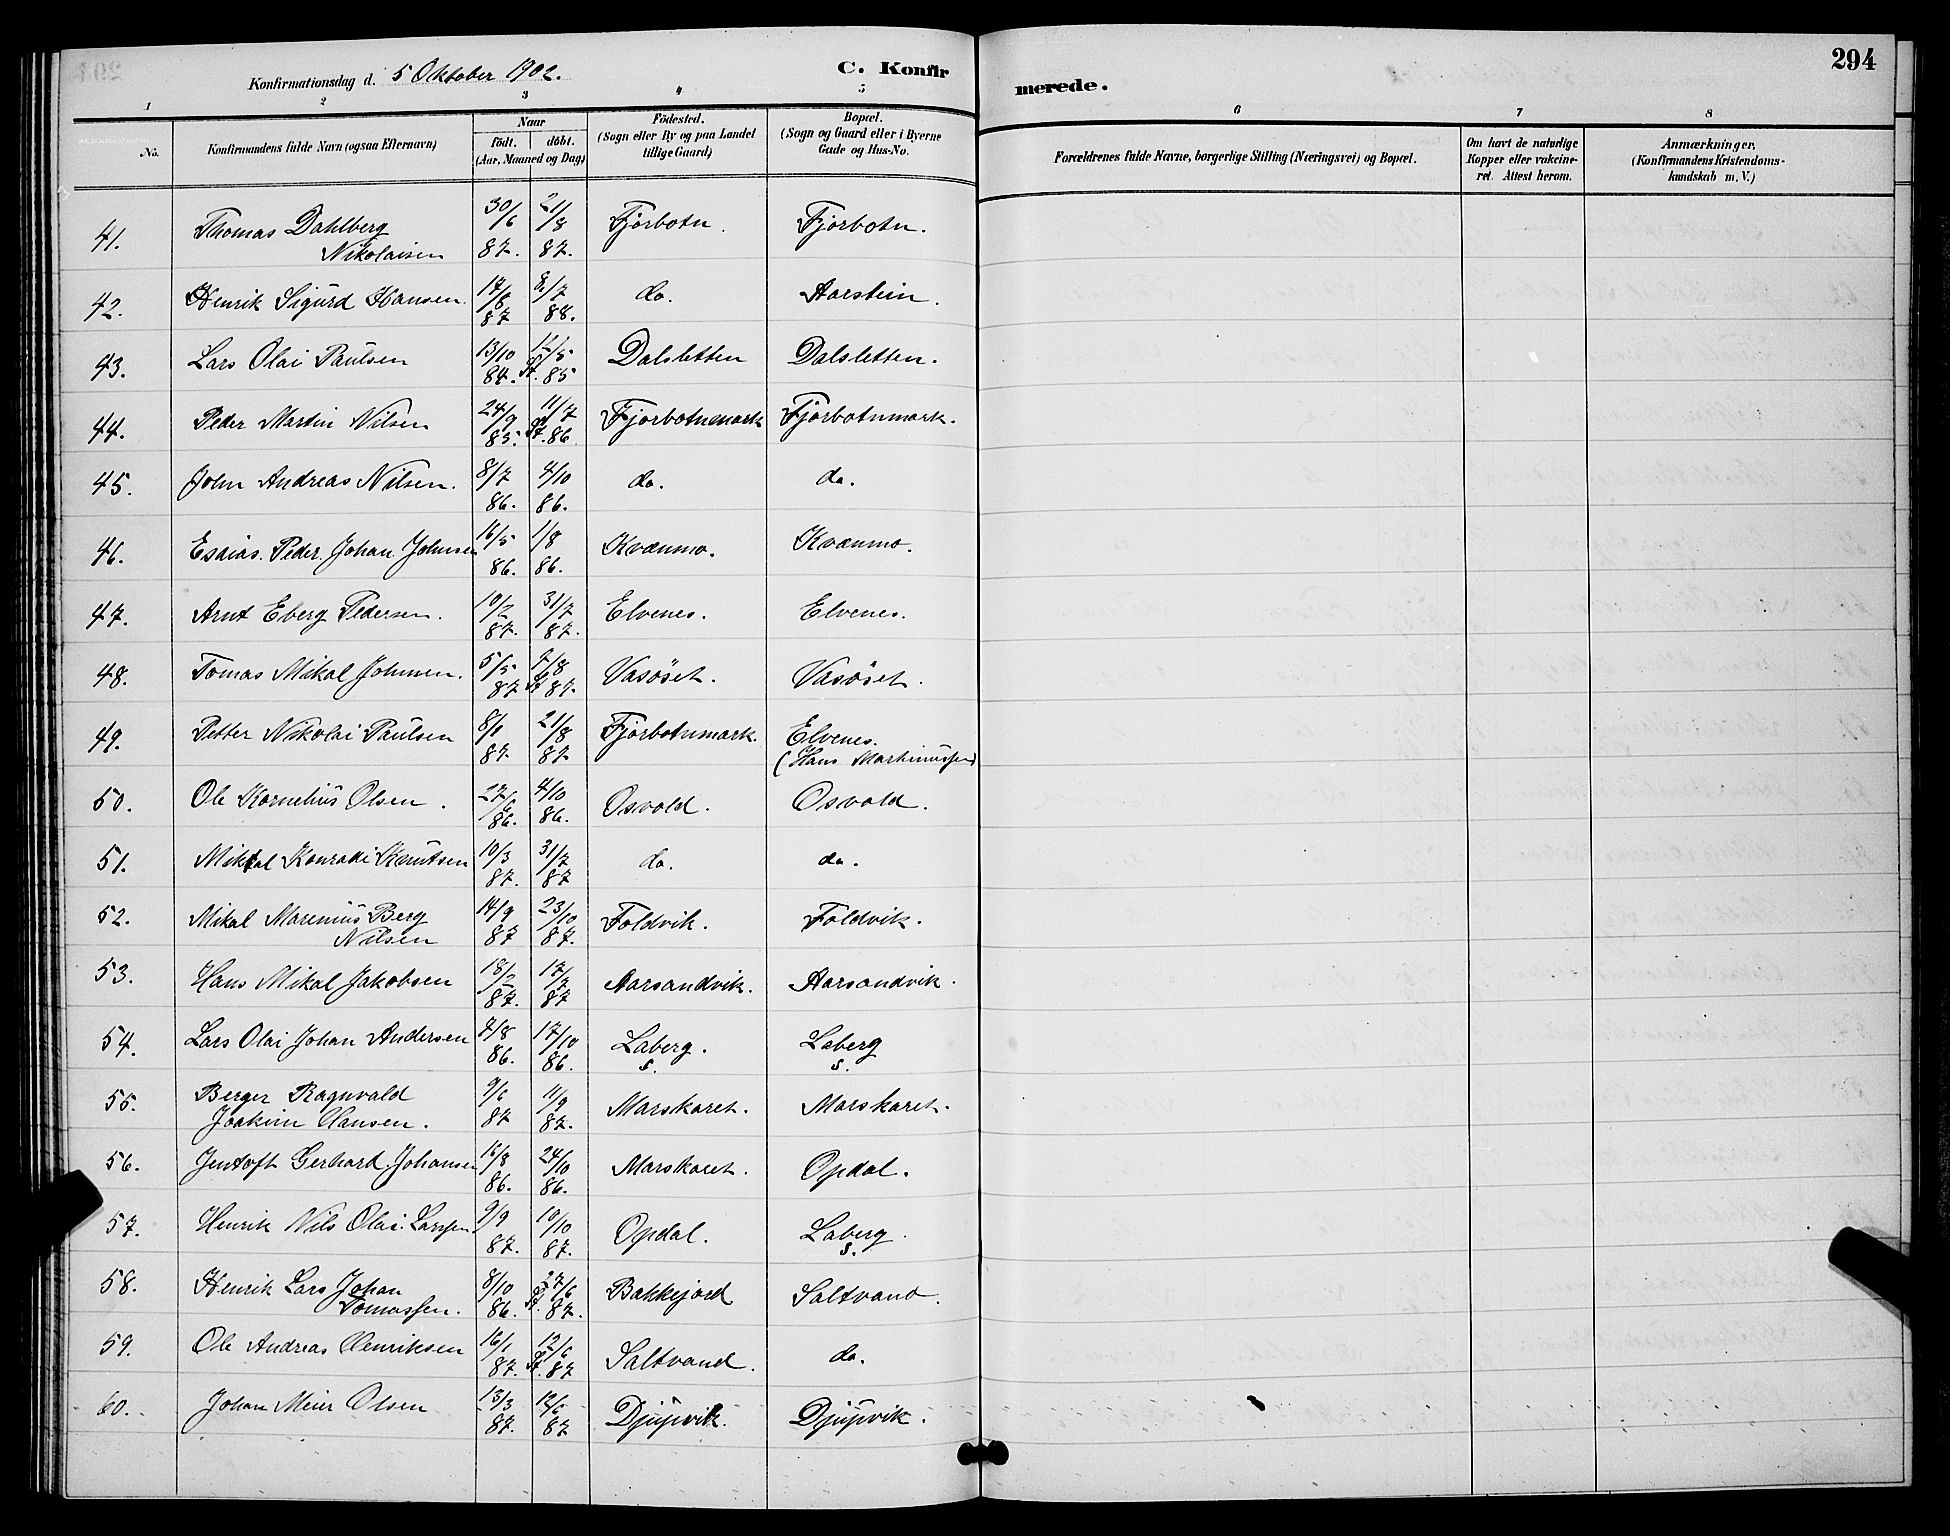 294
Konfirmationsdag d. 5 Oktober 1902.
C. Konfirmerede.
1 2 3 4 5 6 7 8
No.
Konfirmandens fulde Navn (ogsaa Efternavn)
Naar
födt. döbt.
(Aar, Maaned og Dag)
Födested.
(Sogn eller By og paa Landet
tillige Gaard)
Bopæl.
(Sogn og Gaard eller i Byerne
Gade og Hus-No.
Forældrenes fulde Navne, borgerlige Stilling (Næringsvei) og Bopæl.
Om havt de naturlige
Kopper eller vakcine-
ret. Attest herom.
Anmærkninger,
(Konfirmandens Kristendoms-
kundskab m. V.)
41. Thomas Dahlberg Nikolaisen 30/6 87. 21/8 87. Fjorbotn. Fjorbotn.
42. Henrik Sigurd Hansen. 17/8 87 8/7 88. do. Aarstein.
43. Lars Olai Paulsen 13/10 84. 12/5 85 Dalsletten Dalsletten.
44. Peder Martin Nilsen 24/9 85. 11/7 86 Fjorbotnmark Fjorbotnmark.
45. John Andreas Nilsen. 8/7 86. 4/10 86. do. do.
46. Esaias Peder Johan Johnsen 16/5 86. 1/8 86. Kvænmo. Kvænmo.
47. Arnt Eberg Pedersen. 10/2 87. 31/7 87. Elvenes. Elvenes.
48. Tomas Mikal Johnsen. 5/5 87 7/8 87. Vasöset. Vasöset.
49. Petter Nikolai Paulsen 8/1 87 21/8 87 Fjorbotnmark. Elvenes.
(Hans Martinussen)
50. Ole Kornelius Olsen. 27/6 86. 4/10 86. Osvold. Osvold.
51. Mikkal Konradi Knutsen 10/3 87. 31/7 87 do. do.
52. Mikal Marenius Berg Nilsen 14/9 87 23/10 87. Foldvik. Foldvik.
53. Hans Mikal Jakobsen 18/2 87. 17/7 87 Aarsandvik. Aarsandvik.
54. Lars Olai Johan Andersen 7/8 86. 17/10 86. Laberg. s. Laberg s.
55. Berger Ragnvald Joakim Hansen. 9/6 87 11/9 87. Marskaret. Marskaret.
56. Jentoft Gerhard Johansen 16/8 86. 24/10 86. Marskaret. Opdal.
57. Henrik Nils Olai Larssen. 9/9 87. 10/10 87. Opdal. Laberg. s.
58. Henrik Lars Johan Tomassen. 8/10 86. 27/6 87. Bakkejord Saltvand.
59. Ole Andreas Henriksen 16/1 87. 12/6 87 Saltvand. do.
60. Johan Meier Olsen 13/3 87. 12/6 87 Djupvik. Djupvik.